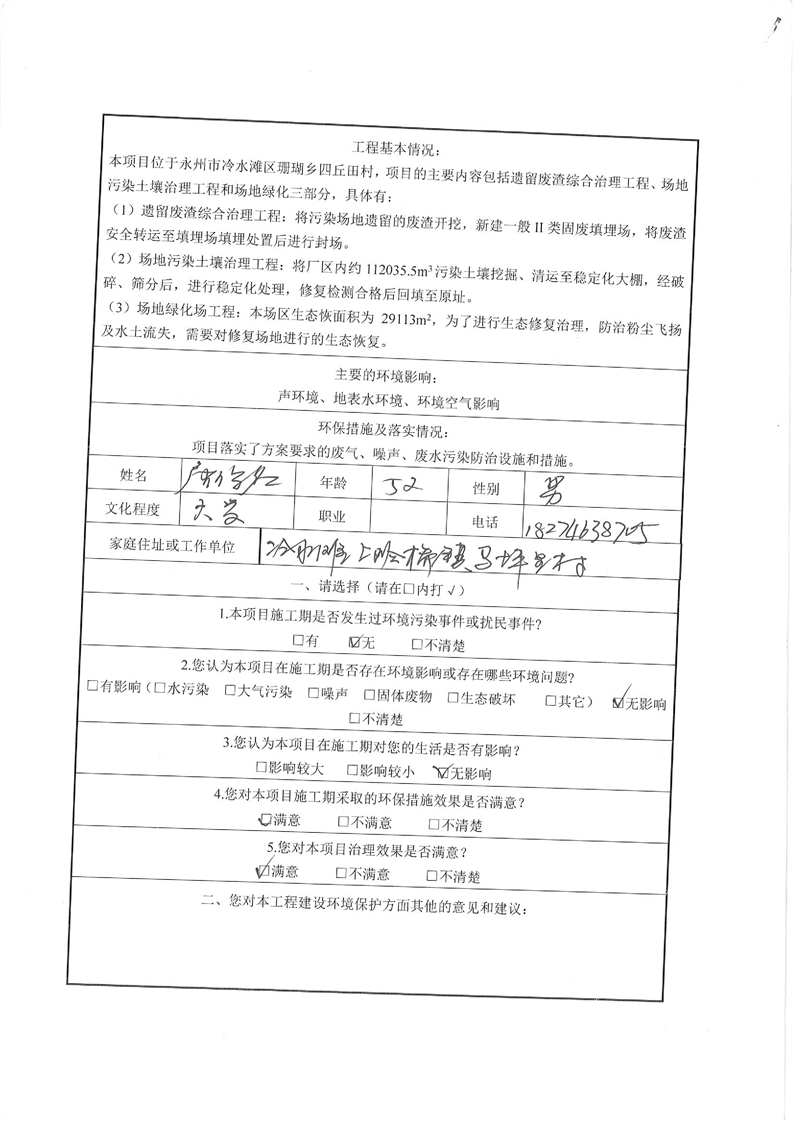 工程基本情况：
本项目位于永州市冷水滩区珊瑚乡四丘田村，项目的主要内容包括遗留废渣综合治理工程、场地
污染土壤治理工程和场地绿化三部分，具体有：
（1）遗留废渣综合治理工程：将污染场地遗留的废渣开挖，新建一般 II 类固废填埋场，将废渣
安全转运至填埋场填埋处置后进行封场。
（2）场地污染土壤治理工程：将厂区内约 112035.5m³污染土壤挖掘、清运至稳定化大棚，经破
碎、筛分后，进行稳定化处理，修复检测合格后回填至原址。
（3）场地绿化场工程：本场区生态恢面积为 29113m²，为了进行生态修复治理，防治粉尘飞扬
及水土流失，需要对修复场地进行的生态恢复。
主要的环境影响：
声环境、地表水环境、环境空气影响
环保措施及落实情况：
项目落实了方案要求的废气、噪声、废水污染防治设施和措施。
姓名 年龄 52 性别 男
文化程度 大学 职业 电话 18274638705
家庭住址或工作单位 冷水滩 上岭桥镇马坪 村
一、请选择（请在□内打 √）
1.本项目施工期是否发生过环境污染事件或扰民事件?
□有 ☑无 □不清楚
2.您认为本项目在施工期是否存在环境影响或存在哪些环境问题?
□有影响（□水污染 □大气污染 □噪声 □固体废物 □生态破坏 □其它） ☑无影响
□不清楚
3.您认为本项目在施工期对您的生活是否有影响?
□影响较大 □影响较小 ☑无影响
4.您对本项目施工期采取的环保措施效果是否满意?
☑满意 □不满意 □不清楚
5.您对本项目治理效果是否满意?
☑满意 □不满意 □不清楚
二、您对本工程建设环境保护方面其他的意见和建议：